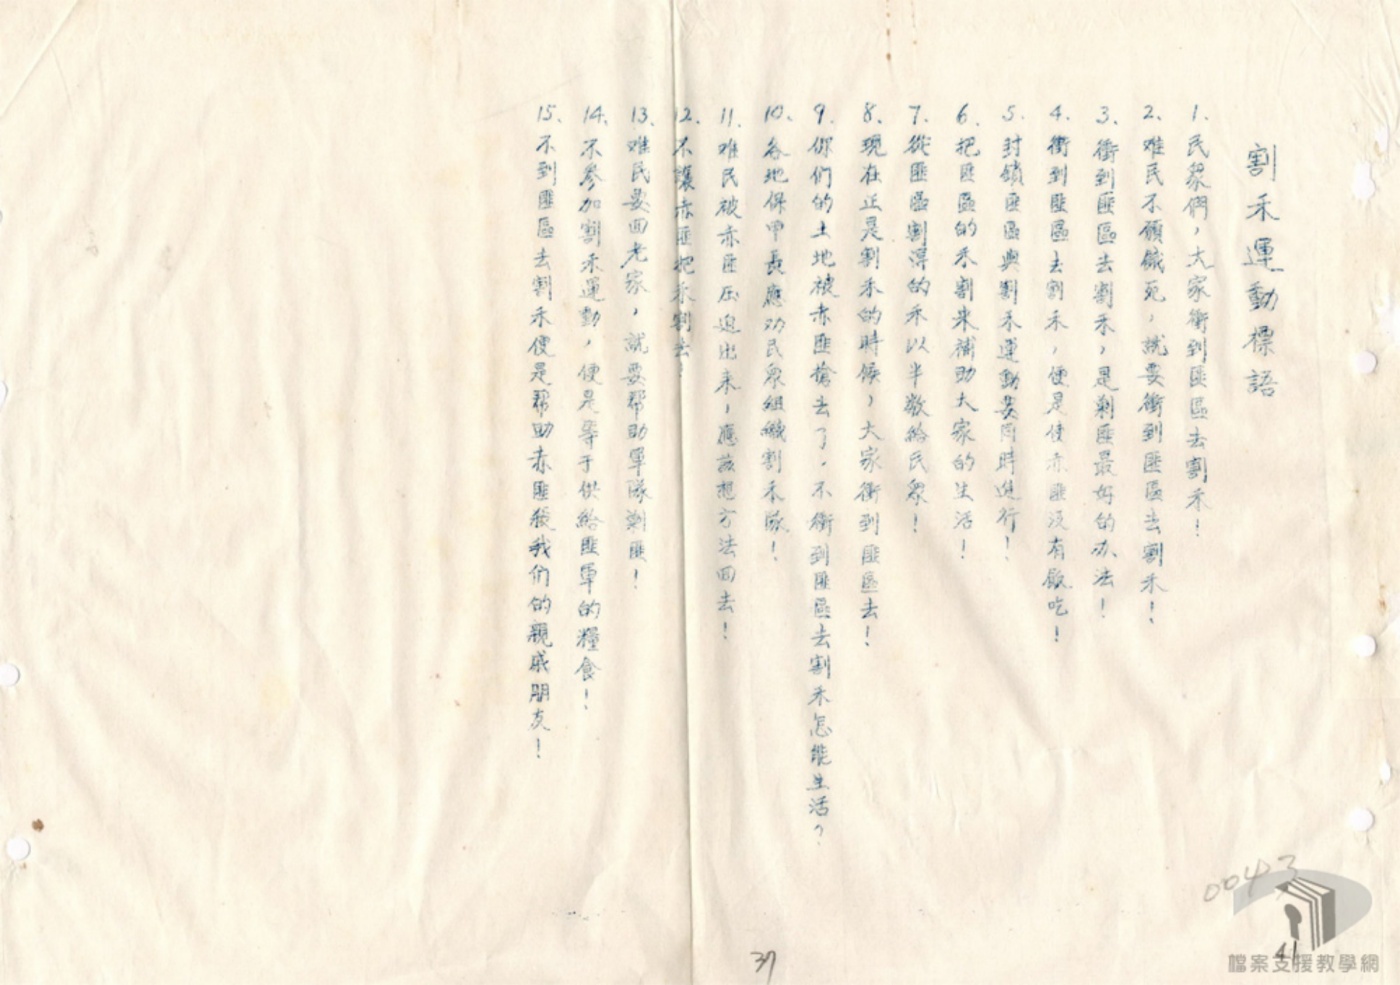 割禾運動標語
1. 民衆們，大家衝到匪區去割禾！
2. 难民不願餓死，就要衝到匪區去割禾！
3. 衝到匪區去割禾，是剿匪最好的办法！
4. 衝到匪區去割禾，便是使赤匪没有飯吃！
5. 封鎖匪區與割禾運動要同時進行！
6. 把匪區的禾割来補助大家的生活！
7. 從匪區割淂的禾以半数給民衆！
8. 現在正是割禾的時候，大家衝到匪區去！
9. 你們的土地被赤匪搶去了，不衝到匪區去割禾怎能生活？
10. 各地保甲長應劝民衆組織割禾隊！
11. 难民被赤匪压迫出来，應該想方法回去！
12. 不讓赤匪把禾割去！
13. 难民要回老家，就要帮助軍隊剿匪！
14. 不参加割禾運動，便是等于供給匪軍的糧食！
15. 不到匪區去割禾便是帮助赤匪殺我们的親戚朋友！
0043
41
37
檔案支援教學網